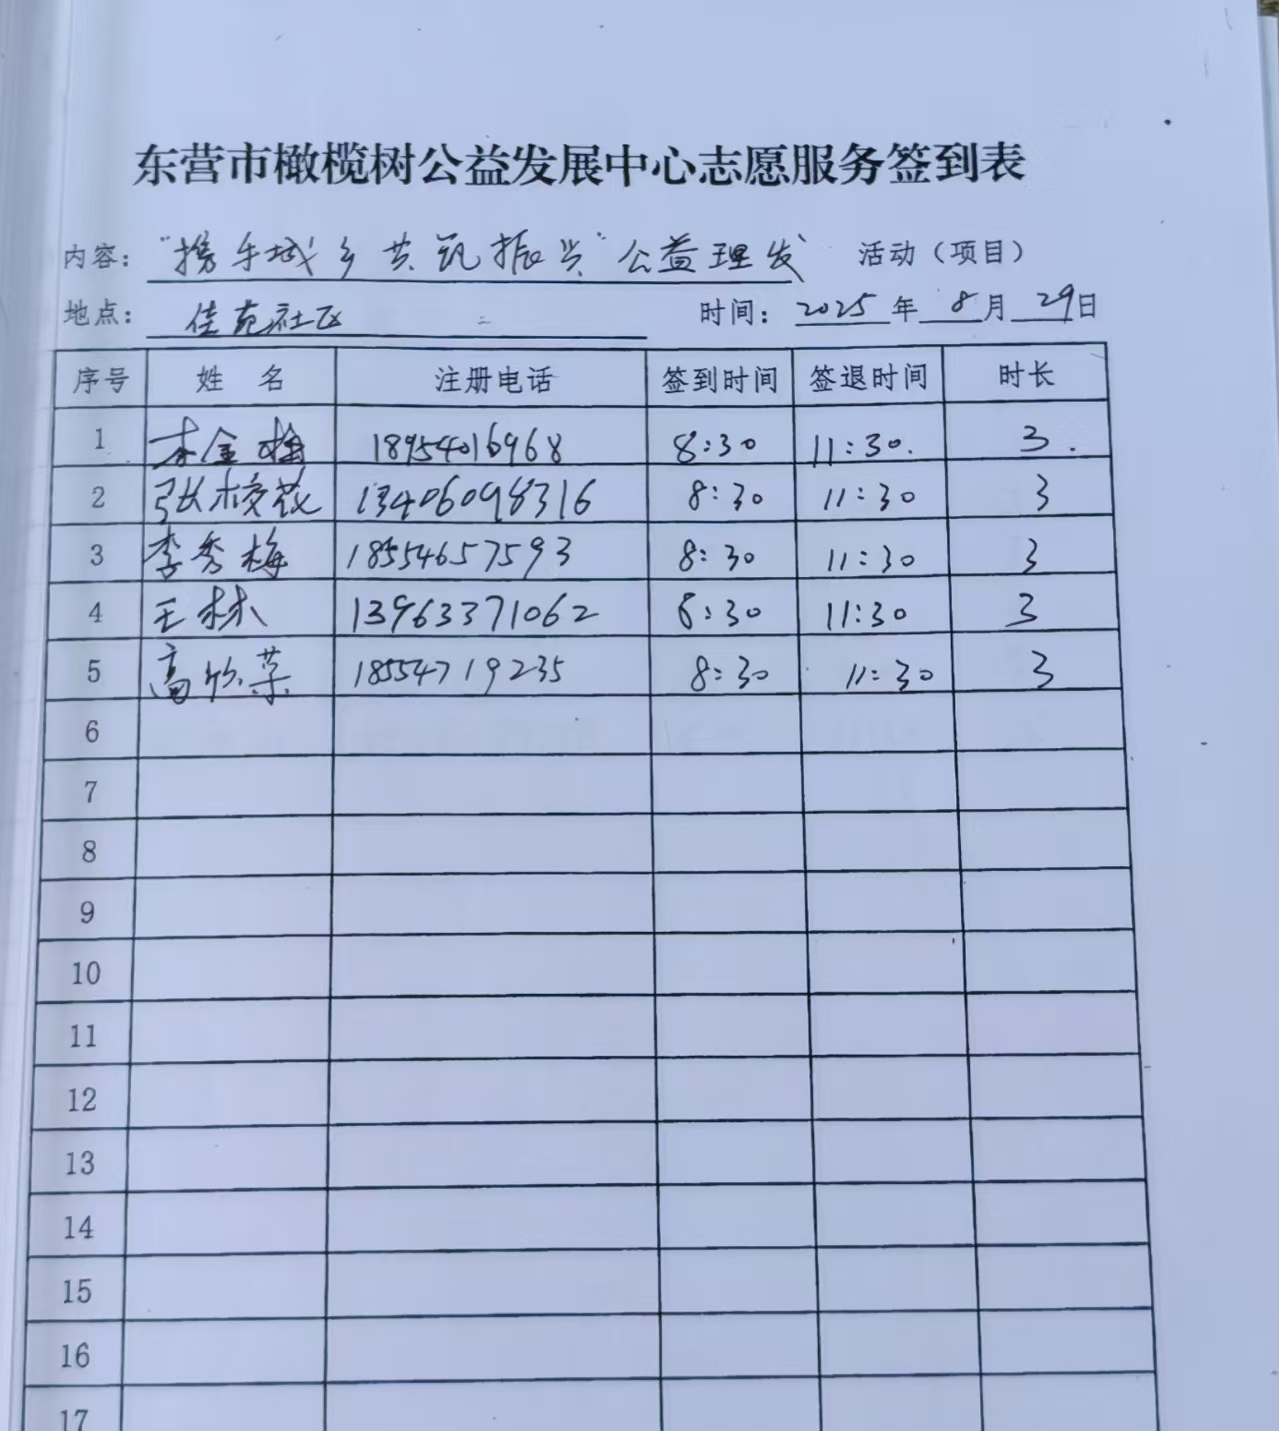 东营市橄榄树公益发展中心志愿服务签到表
内容: "携手城乡共筑振兴"公益理发 活动（项目）
地点: 佳苑社区 时间: 2025 年 8 月 29 日
序号 姓 名 注册电话 签到时间 签退时间 时长
1 李金梅 18954016968 8:30 11:30. 3.
2 张校花 13406098316 8:30 11:30 3
3 李秀梅 18554657593 8:30 11:30 3
4 王林 13963371062 8:30 11:30 3
5 高竹菜 18554719235 8:30 11:30 3
6
7
8
9
10
11
12
13
14
15
16
17